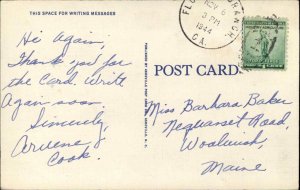 THIS SPACE FOR WRITING MESSAGES
Hi Again,
Thank you for
the Card. Write
Agan soon.
Sincerely,
Arvene
Cook.
POST CARD
BRANCH
NOV
3 PM
1944
GA.
1 CENT 1
Miss Barbara Baker
Neguasset Road,
Woolwich,
Maine